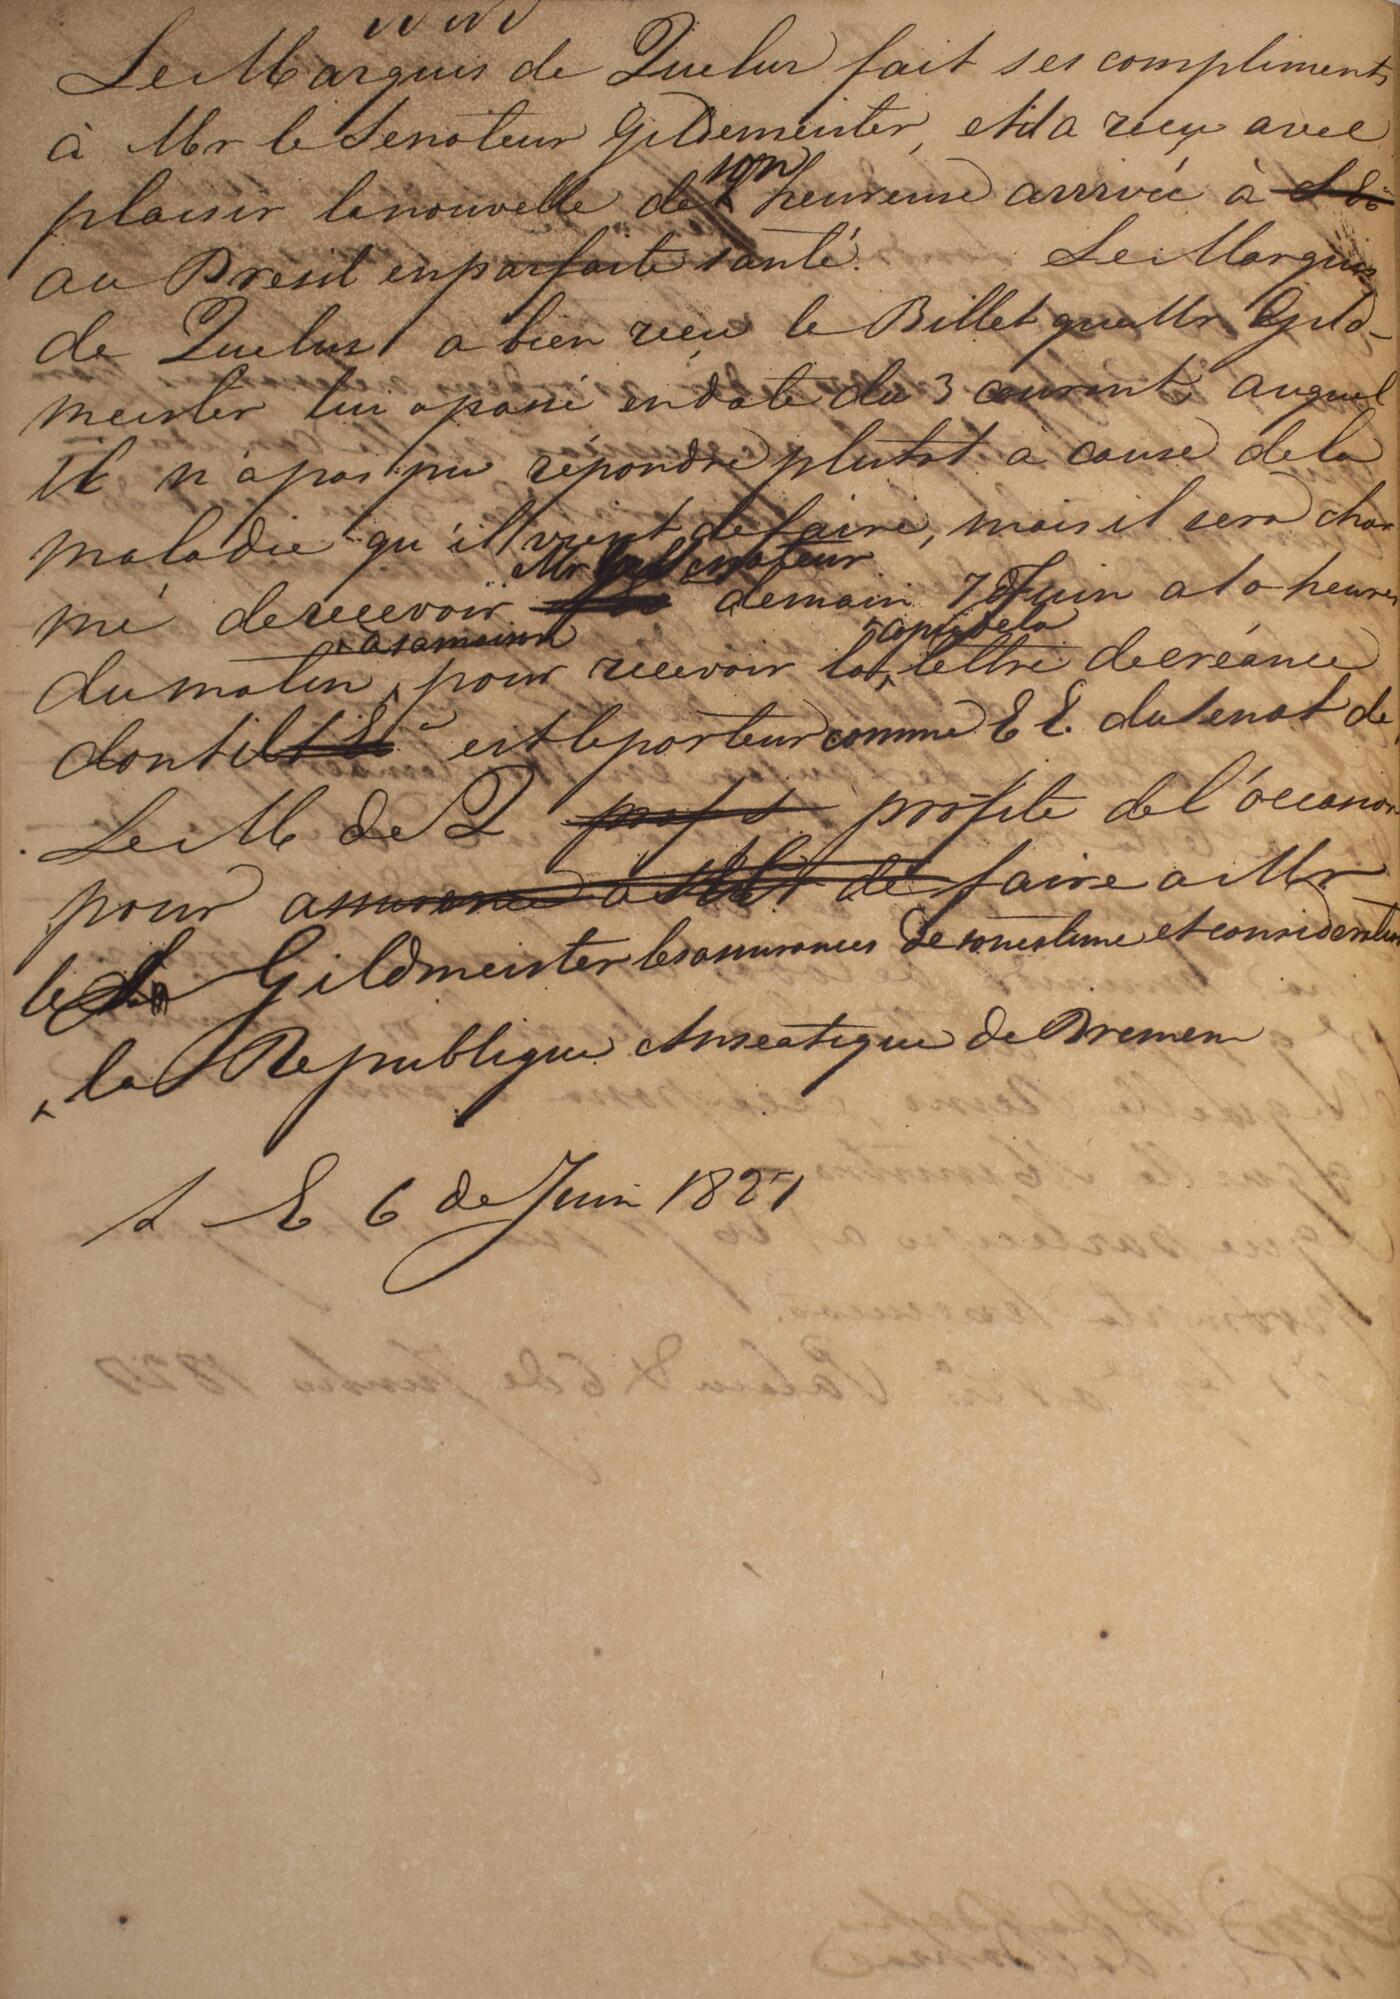 Le Marquis de Quelus fait ses compliments
à Mr le Senateur Gildemeister, et il a reçu avec
plaisir la nouvelle de son heureuse arrivée à
au Bresil en parfaite santé. Le Marquis
de Quelus a bien reçu le Billet que Mr Gild-
meister lui a passé en date du 3 courant, auquel
il n'a pas pu répondre plutot a cause de la
maladie qu'il vient de faire, mais il sera char
mé de recevoir Mr le Senateur demain 7 Juin a 10 heures
du matin, a sa maison pour recevoir la copie de la lettre de créance
dont il est le porteur comme E E. du Senat de
Le M de Q profite de l'occasion
pour assurance a de faire a Mr
le Gildmeister les assurances de son estime et consideration
la Republique Anseatique de Bremen
S E 6 de Juin 1827